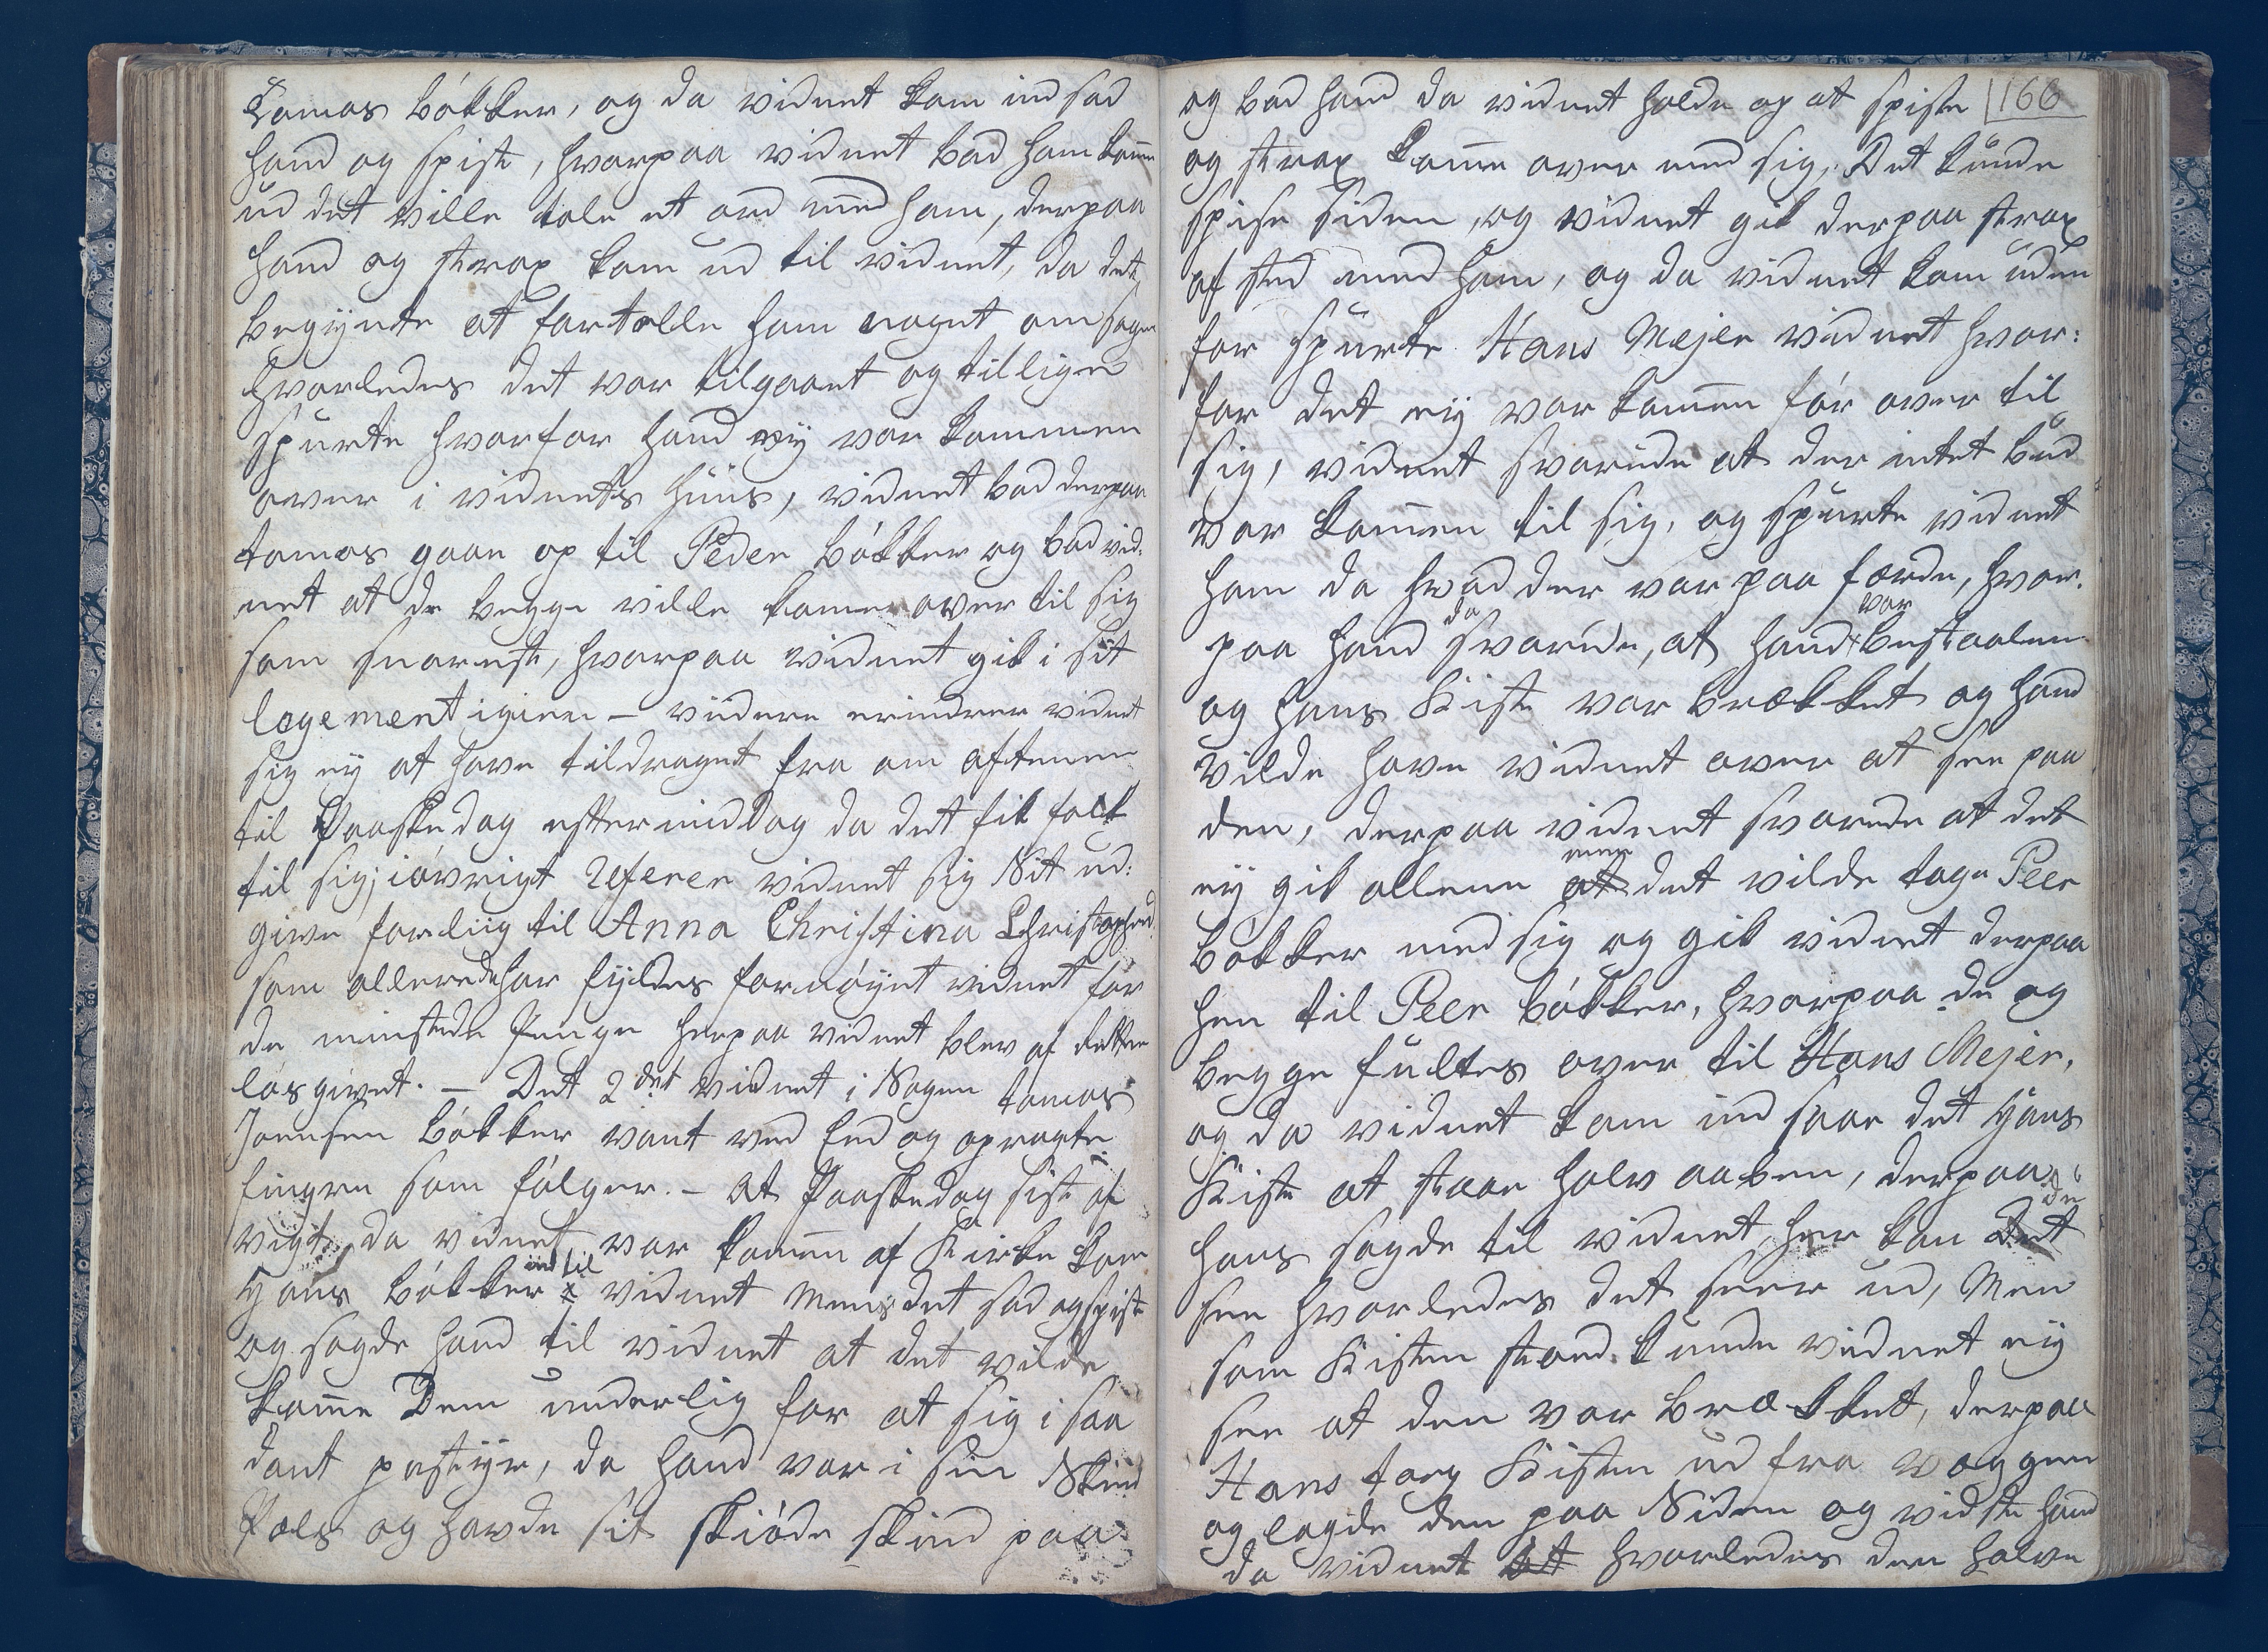 Tomas bókker, og da vidnet kom ind sad
hand og spiste, hvorpaa vidnet bad ham kom̄e
ud det ville tale et ord med ham, derpaa
hand og strax kom ud til vidnet, da det
begÿnte at fortelle ham noget om sagen
hvorledes det var tilgaaet og tillige
spurte hvorfor hand eÿ var kommen
over i vidnets huus, vidnet bad derpaa
tomas gaae op til Peder bókker og bad vid:
net at de begge ville komme over til sig
som snareste, hvorpaa vidnet gik i sit
logement igien – videre erindrer vidnet
sig eÿ at have tildraget fra om aftenen
til Paaske dag efftermiddag da det fik folk
til sig; ióvrigt referer vidnet sig Sit ud:
givne forliig til Anna Christina Christophersd.
som allerede har fyldes fornóÿet vidnet for
de mistede Penge herpaa vidnet blev af Retten
løs givet. – Det 2det vidnet i Sagen tomas
Joensen bókker vant ved Eed og opragte
fingre som fólger. – At Paaskedag sist af
vigt da vidnet var kom̄en af Kirke kom
Hans bókker x ind til vidnet mens det sad og spiste
og sagde hand til vidnet at det vilde
kom̄e Dem underlig for at sig i saa
dant postÿr, da hand var i sin Skind
Pæls og havde sit skióde skind paa
166
og bad hand da vidnet holde op at spise
og strax kom̄e over med sig, Det kunde
spise siden, og vidnet gik derpaa strax
af sted med ham, og da vidnet kom uden
for spurte Hans Mejer vidnet hvor:
for det eÿ var kom̄en fór over til
sig, vidnet svarede at der intet bud
var kom̄en til sig, og spurte vidnet
ham da hvad der var paa færde, hvor:
paa hand da svarede, at hand var bestaalen
og hans Kiste var brækket og hand
vilde have vidnet over at see paa
den, derpaa vidnet svarede at det
eÿ gik allene at men det vilde tage Peer
bókker med sig og gik vidnet derpaa
hen til Peer bókker, hvorpaa de og
begge fultes over til Hans Mejer,
og da vidnet kom ind saae det Hans
Kiste at staae halv aaben, derpaa
Hans sagde til vidnet, her kan Det de
see hvorledes det seer ud, Men
som Kisten stoed kunde vidnet eÿ
see at den var brækket, derpaa
Hans toeg Kisten ud fra væggen
og lagde den paa Siden og vidste hand
da vidnet at hvorledes den halve